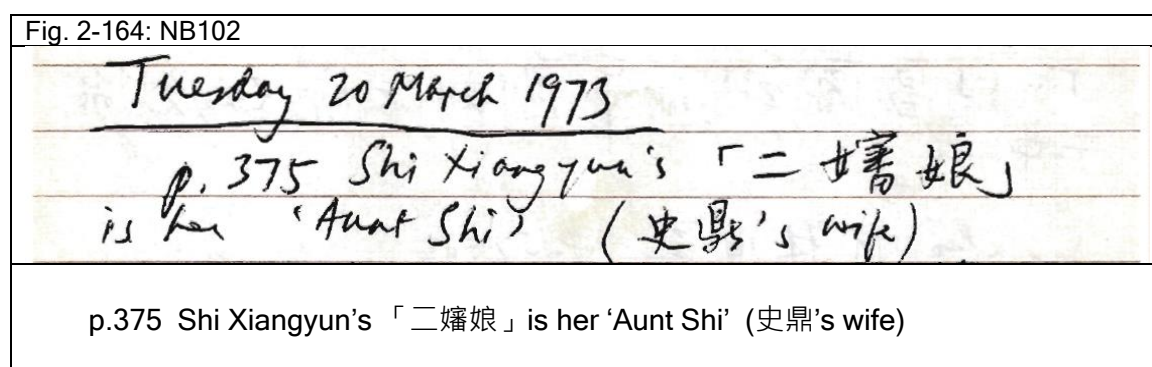 Fig. 2-164: NB102
Tuesday 20 March 1973
p. 375 Shi Xiangyun's 「二嬸娘」
is her 'Aunt Shi' (史鼎's wife)
p.375 Shi Xiangyun's 「二嬸娘」is her ‘Aunt Shi’ (史鼎’s wife)